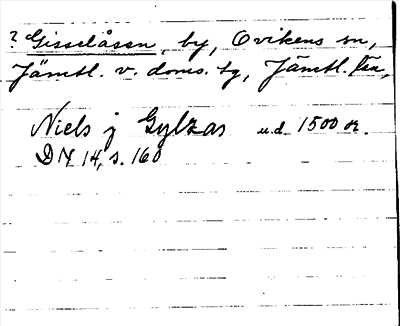 ? Gisselåsen, by, Ovikens sn,
Jämtl. v. doms. tg, Jämtl. län,
Niels j Gylzas u.d. 1500 or.
DN 14, s. 160